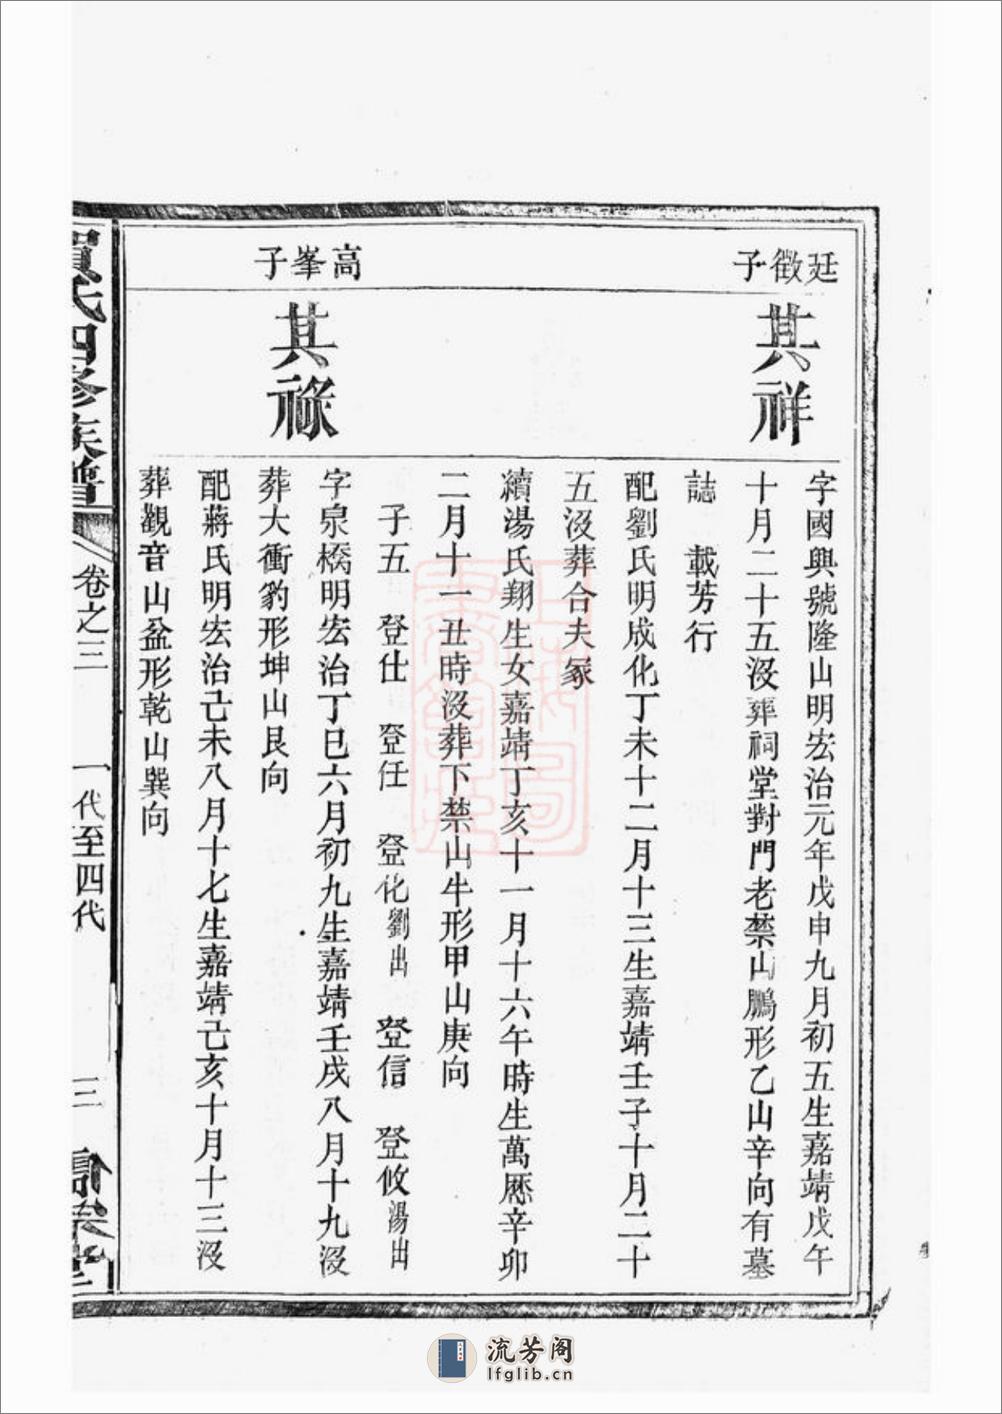 廷徵子
其祥
字國興號隆山明宏治元年戊申九月初五生嘉靖戊午
十月二十五沒葬祠堂對門老禁山鵬形乙山辛向有墓
誌 載芳行
配劉氏明成化丁未十二月十三生嘉靖壬子十月二十
五沒葬合夫冢
續湯氏翔生女嘉靖丁亥十一月十六午時生萬厯辛卯
二月十一丑時沒葬下禁山牛形甲山庚向
子五 登仕 登任 登化劉出 登信 登攸湯出
高峯子
其祿
字泉橋明宏治丁巳六月初九生嘉靖壬戌八月十九沒
葬大衝豹形坤山艮向
配蔣氏明宏治己未八月十七生嘉靖己亥十月十三沒
葬觀音山盆形乾山巽向
賀氏四修族譜 卷之三 一代至四代 三
流芳阁
lfglib.cn